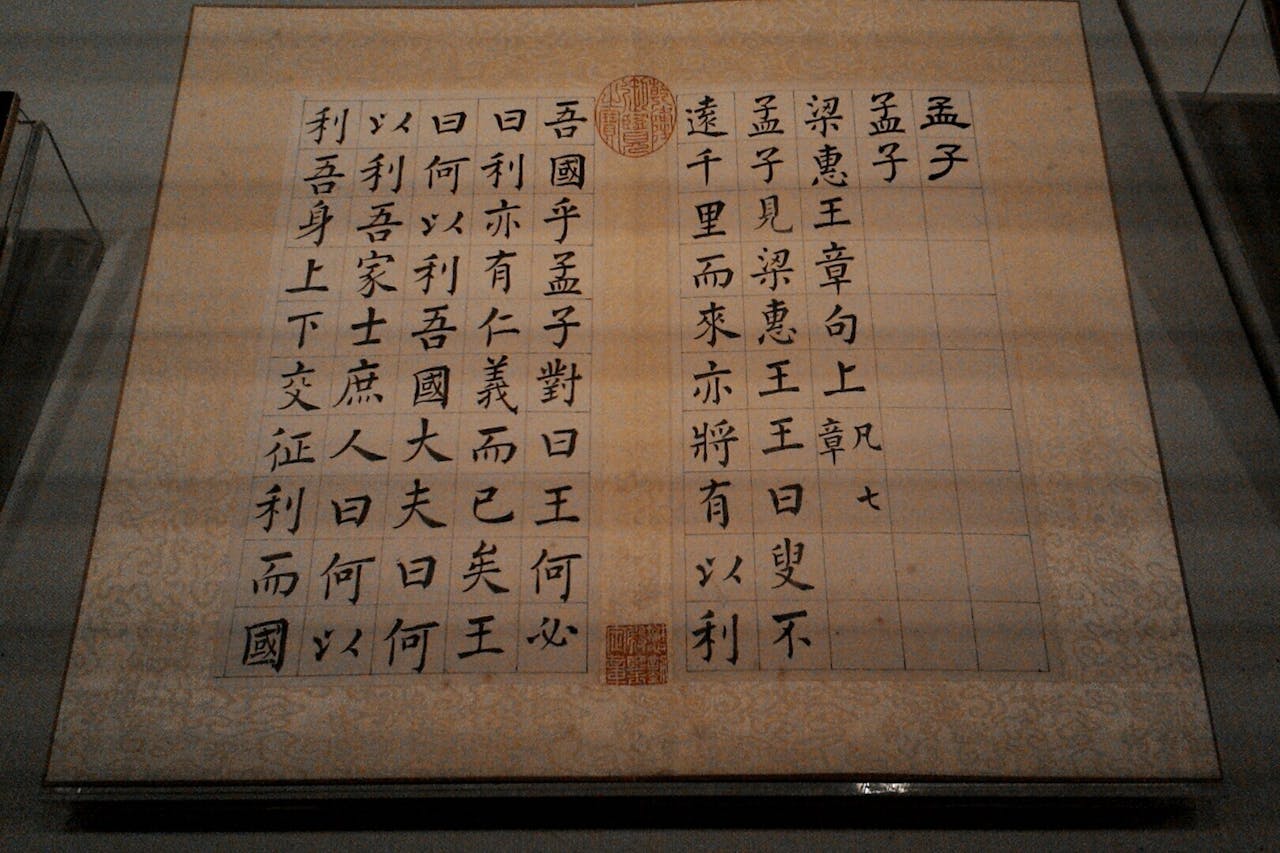 孟子
孟子
梁惠王章句上凡七章
孟子見梁惠王王曰叟不
遠千里而來亦將有以利
乾隆御覽之寶
吾國乎孟子對曰王何必
曰利亦有仁義而已矣王
曰何以利吾國大夫曰何
以利吾家士庶人曰何以
利吾身上下交征利而國